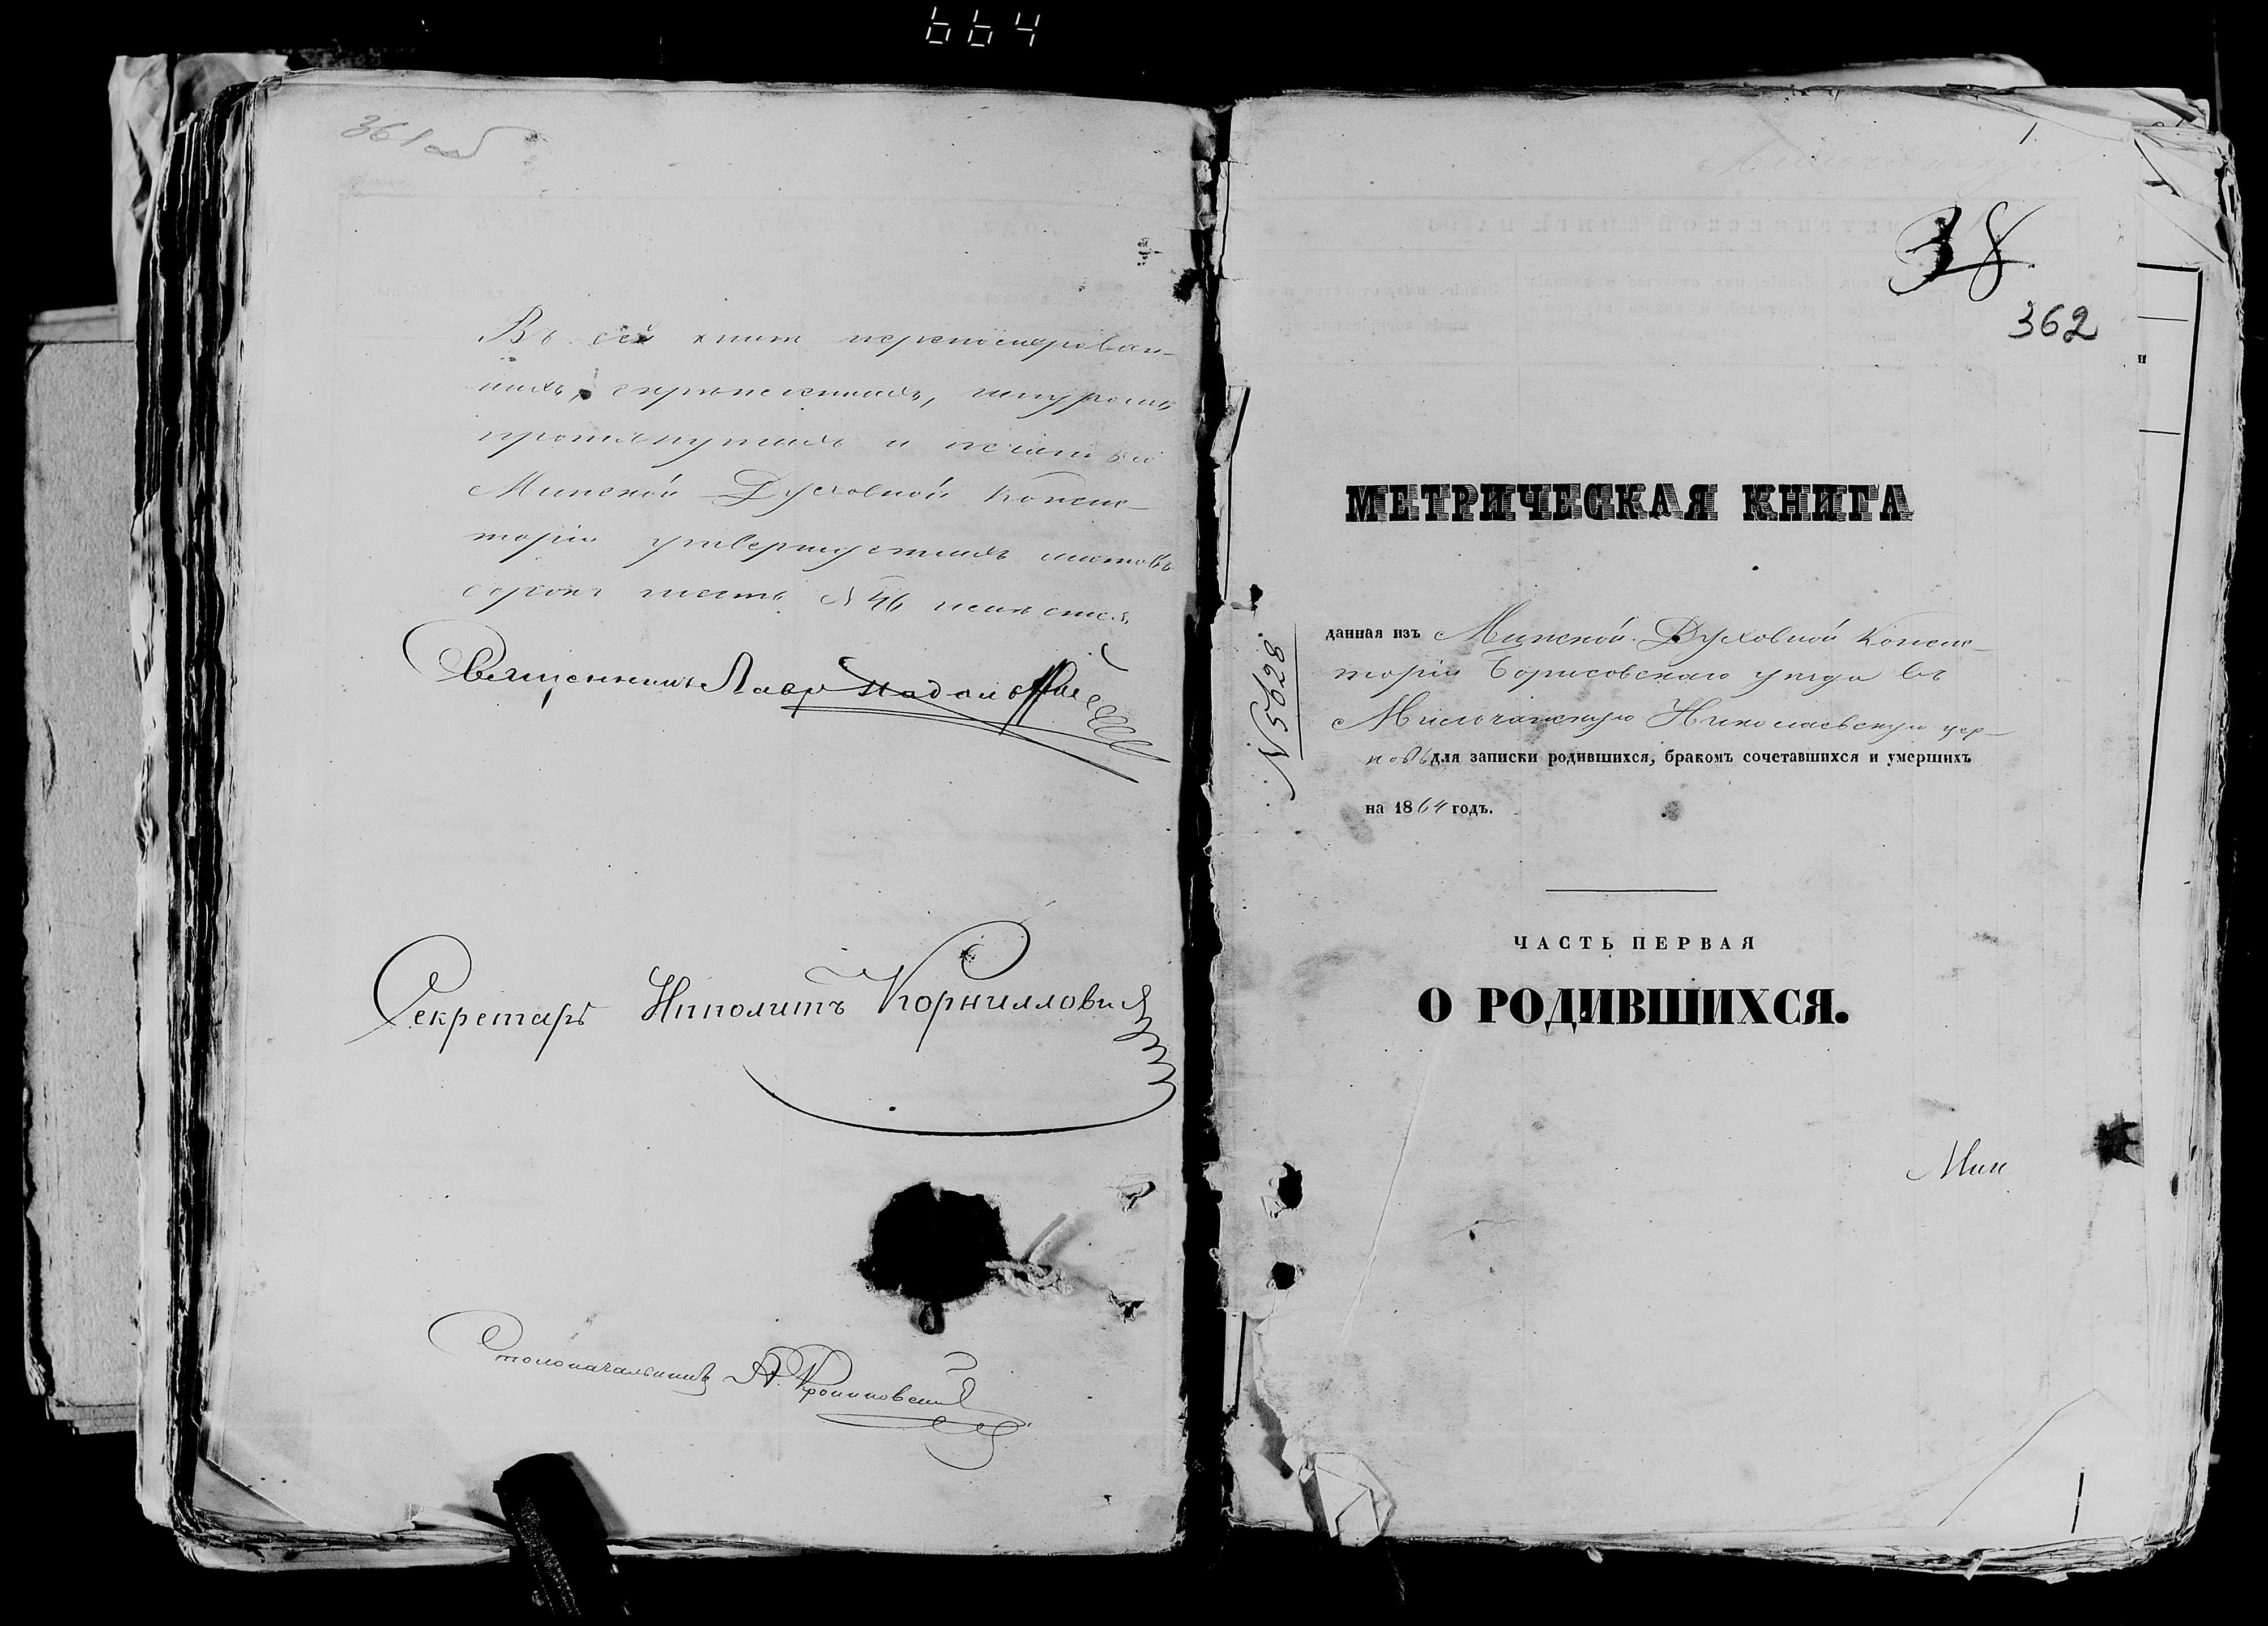 664
361 об
Въ сей книгѣ переномерован-
ныхъ, скрѣпленныхъ, шнуромъ
протянутыхъ и печатью
Минской Духовной Консис-
торіи утвержденныхъ листовъ
сорокъ шесть N 46 числится
Священникъ
Секретарь Ипполитъ Корнилловичъ
Столоначальникъ А.
38
362
МЕТРИЧЕСКАЯ КНИГА
N 5628
данная изъ Минской Духовной Консис-
торіи Борисовскаго уѣзда въ
Мильчанскую Николаевскую цер-
ковь для записки родившихся, бракомъ сочетавшихся и умершихъ
на 1864 годъ.
ЧАСТЬ ПЕРВАЯ
О РОДИВШИХСЯ.
Мин